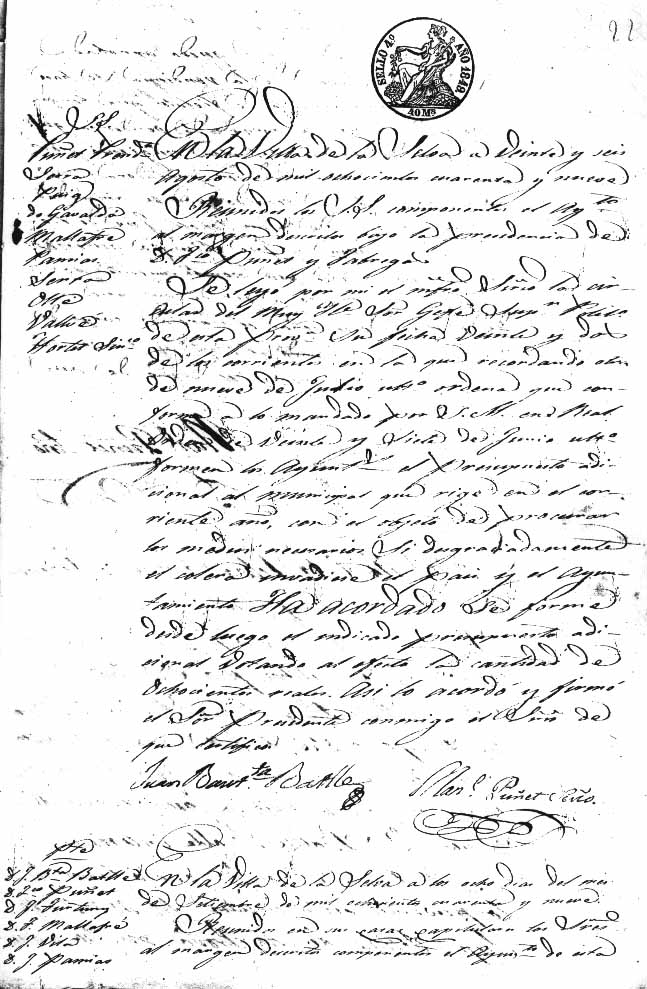 22
SELLO 4º AÑO 1849.
40 Ms
S.S.
Puñet Presid.te
Serra
Puig
de Gavaldá
Mallafré
Pamias
Serra
Olle
Vallvé
Hortet Sínco
En la Villa de la Selva a Veinte y seis
Agosto de mil ochocientos cuarenta y nueve
Reunidos los S.S. componentes el Ay.to
al margen descritos bajo la presidencia de
D. Fco Puñet y Fabregas
Se leyó por mi el infro Srio la cir-
cular del Muy Ile Sor Gefe Supor Polco
de esta Prova su fecha Veinte y dos
de los corrientes en la que recordando otra
de nueve de Julio ulto ordena que con-
forme a lo mandado por S.M. en Real
Orden de Veinte y Siete de Junio ulto
formen los Ayuntos el presupuesto adi-
cional al municipal que rige en el cor-
riente año, con el objeto de procurar
los medios necesarios si desgraciadamente
el colera invadiese el pais y el Ayun-
tamiento Ha acordado se forme
desde luego el indicado presupuesto adi-
cional votando al efecto la cantidad de
Ochocientos reales. Asi lo acordó y firmó
el Sor Presidente conmigo el Srio de
que certifico
Juan Baut.ta Batlle
Marl Puñet Srio.
Pte
D. J. Bta Batlle
D. Fco Puñet
D. J.
D. F. Mallafré
D. J. Vila
D. J. Pamias
En la Villa de la Selva a los ocho dias del mes
de Setiembre de mil ochocientos cuarenta y nueve.
Reunidos en sus casas capitulares los Sres
al margen descritos componentes el Ayunto de esta